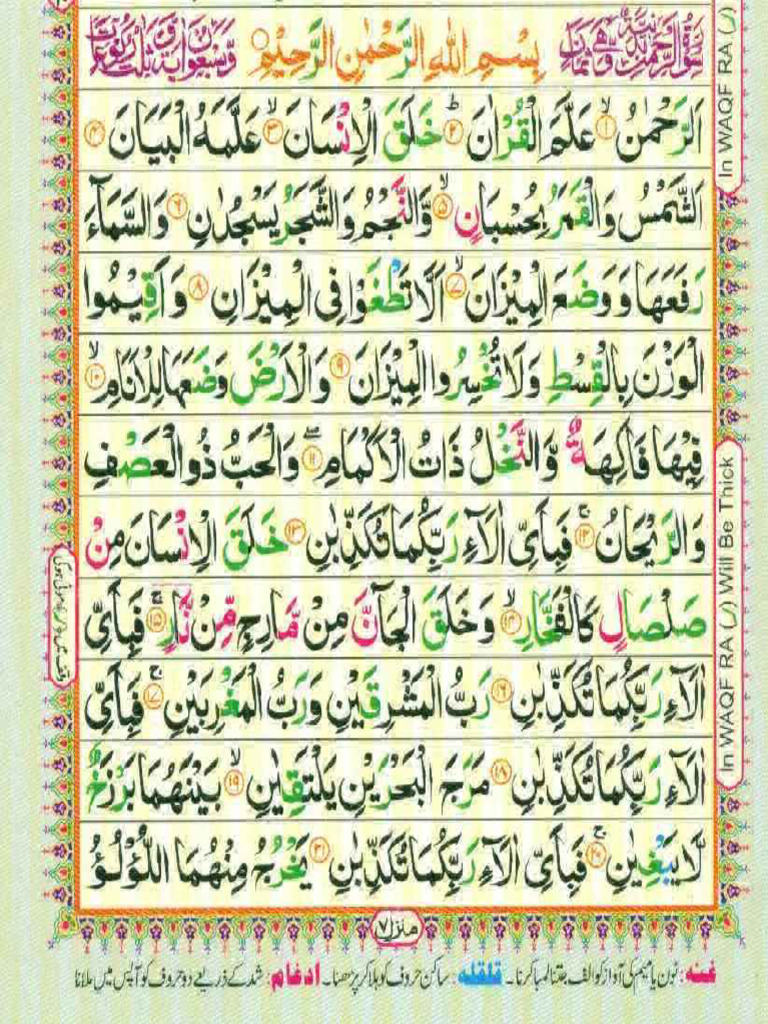 سُوْرَةُ الرَّحْمٰنِ مَدَنِيَّةٌ وَّهِيَ ثَمَانٌ
بِسْمِ اللّٰهِ الرَّحْمٰنِ الرَّحِيْمِ
وَّسَبْعُوْنَ اٰيَةً وَّثَلٰثُ رُكُوْعَاتٍ
اَلرَّحْمٰنُ ۙ﴿۱﴾ عَلَّمَ الْقُرْاٰنَ ؕ﴿۲﴾ خَلَقَ الْاِنْسَانَ ۙ﴿۳﴾ عَلَّمَهُ الْبَيَانَ ﴿۴﴾
اَلشَّمْسُ وَالْقَمَرُ بِحُسْبَانٍ ۙ﴿۵﴾ وَّالنَّجْمُ وَالشَّجَرُ يَسْجُدٰنِ ﴿۶﴾ وَالسَّمَآءَ
رَفَعَهَا وَوَضَعَ الْمِيْزَانَ ۙ﴿۷﴾ اَلَّا تَطْغَوْا فِى الْمِيْزَانِ ﴿۸﴾ وَاَقِيْمُوا
الْوَزْنَ بِالْقِسْطِ وَلَا تُخْسِرُوا الْمِيْزَانَ ﴿۹﴾ وَالْاَرْضَ وَضَعَهَا لِلْاَنَامِ ۙ﴿۱۰﴾
فِيْهَا فَاكِهَةٌ وَّالنَّخْلُ ذَاتُ الْاَكْمَامِ ۖ﴿۱۱﴾ وَالْحَبُّ ذُو الْعَصْفِ
وَالرَّيْحَانُ ۚ﴿۱۲﴾ فَبِاَىِّ اٰلَآءِ رَبِّكُمَا تُكَذِّبٰنِ ﴿۱۳﴾ خَلَقَ الْاِنْسَانَ مِنْ
صَلْصَالٍ كَالْفَخَّارِ ۙ﴿۱۴﴾ وَخَلَقَ الْجَآنَّ مِنْ مَّارِجٍ مِّنْ نَّارٍ ۚ﴿۱۵﴾ فَبِاَىِّ
اٰلَآءِ رَبِّكُمَا تُكَذِّبٰنِ ﴿۱۶﴾ رَبُّ الْمَشْرِقَيْنِ وَرَبُّ الْمَغْرِبَيْنِ ۚ﴿۱۷﴾ فَبِاَىِّ
اٰلَآءِ رَبِّكُمَا تُكَذِّبٰنِ ﴿۱۸﴾ مَرَجَ الْبَحْرَيْنِ يَلْتَقِيٰنِ ۙ﴿۱۹﴾ بَيْنَهُمَا بَرْزَخٌ
لَّا يَبْغِيٰنِ ۚ﴿۲۰﴾ فَبِاَىِّ اٰلَآءِ رَبِّكُمَا تُكَذِّبٰنِ ﴿۲۱﴾ يَخْرُجُ مِنْهُمَا اللُّؤْلُؤُ
منزل ۷
غنہ: نون یا میم کی آواز کو الف جتنا لمبا کرنا۔ قلقلہ: ساکن حروف کو ہلا کر پڑھنا۔ ادغام: شد کے ذریعے دو حروف کو آپس میں ملانا
In WAQF RA (ر)
In WAQF RA (ر) Will Be Thick